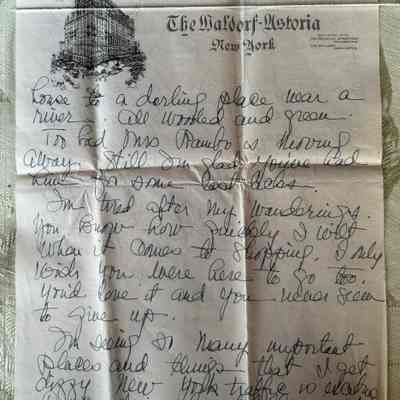 The Waldorf-Astoria
New York
house to a darling place near a
river. All wooded and green.
Too bad Miss is moving
away. Still I'm glad you've had
time for some last
I'm tired after my wanderings.
You know how quickly I wilt
when it comes to shopping. I only
wish you were here to go too.
You'd love it and you never seem
to give up.
I'm seeing so many important
places and things that I get
dizzy. New York traffic is